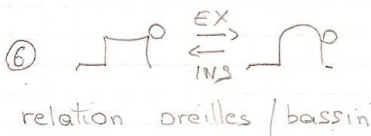 EX
⑥
INS
relation oreilles / bassin